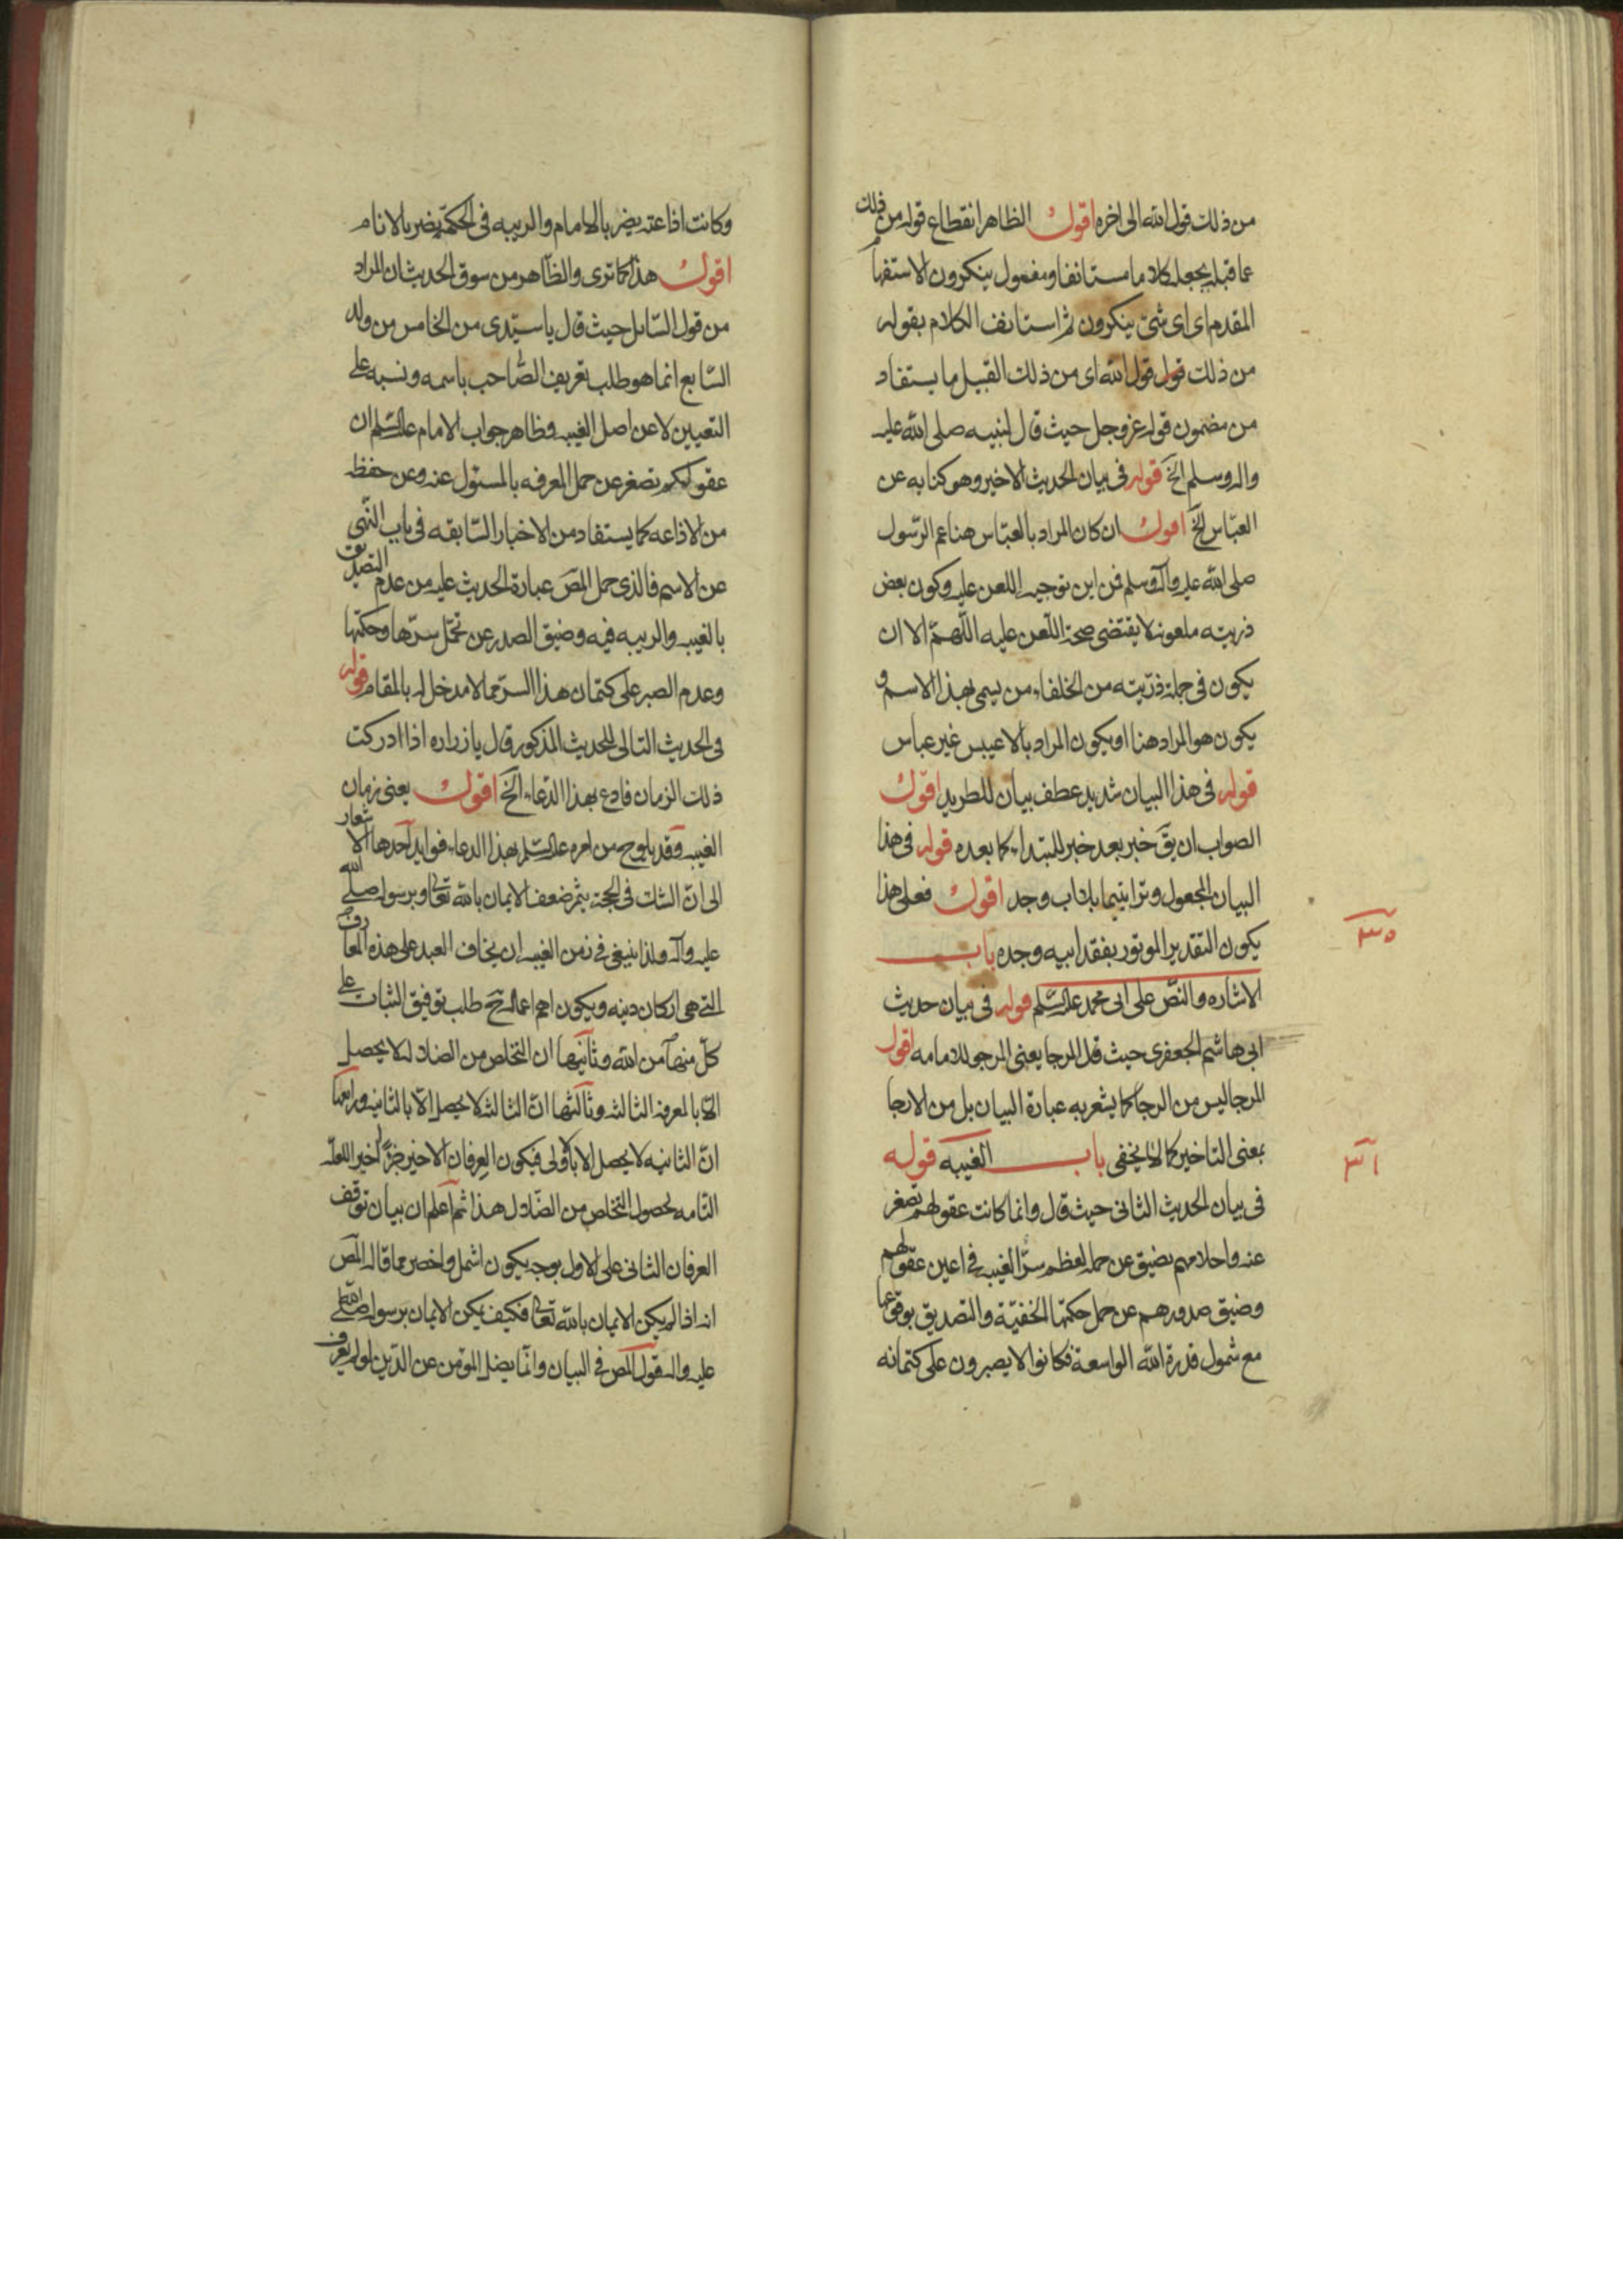 من ذلك قول الله الى اخره اقول الظاهر انقطاع قوله من ذلك
عما قبله بجعله كلاما مستانفا ومفعول ينكرون الاستفها
المقدم اى اى شئ ينكرون ثم استانف الكلام بقوله
من ذلك قول قول الله اى من ذلك القبيل ما يستفاد
من مضمون قوله عز وجل حيث قال لنبيه صلى الله عليه
واله وسلم الخ قوله فى بيان الحديث الاخير وهو كنايه عن
العبّاس الخ اقول ان كان المراد بالعبّاس هنا عم الرّسول
صلى الله عليه وآله وسلم فمن اين توجيه اللعن عليه وكون بعض
ذريته ملعونه لا يقتضى صحة اللّعن عليه اللّهمّ الا ان
يكون فى جملة ذرّيته من الخلفاء من يسمى بهذا الاسم و
يكون هو المراد هنا او يكون المراد بالاعيبس غير عباس
قوله فى هذا البيان شديد عطف بيان للطريد اقول
الصواب ان يقَ خبر بعد خبر للمبتداء كما بعده قوله فى هذا
البيان المجعول وترا بتيما باداب وجد اقول فعلى هذا
يكون التقدير الموتور بفقد ابيه وجده باب
٣٠
الاشاره والنصّ على ابى محمد عليه السّلم قوله فى بيان حديث
ابى هاشم الجعفرى حيث قال المرجا يعنى المرجو للامامه اقول
المرجا ليس من الرجا كما يشعر به عبارة البيان بل من الارجا
بمعنى التاخير كما لا يخفى باب الغيبه قوله
٣١
فى بيان الحديث الثانى حيث قال وانما كانت عقولهم تصغر
عنه واحلامهم تضيق عن حمله لعظم سرّ الغيبه فى اعين عقولهم
وضيق صدورهم عن حمل حكمتها الخفيّة والتصديق بوقوعها
مع شمول قدرة الله الواسعة فكانوا لا يصبرون على كتمانه
وكانت اذاعته يضر بالامام والريبه فى الحكمة يضر بالانام
اقول هذا كما ترى والظاهر من سوق الحديث ان المراد
من قول السّايل حيث قال يا سيّدى من الخامس من ولد
السّابع انما هو طلب تعريف الصّاحب باسمه ونسبه على
التعيين لا عن اصل الغيبه وظاهر جواب الامام عليه السّلم ان
عقولكم تصغر عن حمل المعرفه بالمسئول عنه وعن حفظه
من الاذاعه كما يستفاد من الاخبار السّابقه فى باب النّهى
عن الاسم فالذى حمل المصَ عبارة الحديث عليه من عدم التصديق
بالغيبه والريبه فيه وضيق الصدر عن تحمّل سرّها وحكمتها
وعدم الصبر على كتمان هذا السرّ مما لا مدخل له بالمقام قوله
فى الحديث التالى للحديث المذكور قال يا زراره اذا ادركت
ذلك الزمان فادع بهذا الدّعاء الخ اقول يعنى زمان
الغيبه وقد يلوح من امره عليه السّلم بهذا الدعاء فوايد احدها الاشعار
الى انّ الشك فى الحجة يثمر ضعف الايمان بالله تعالى وبرسوله صلى الله
عليه وآله ولذا ينبغى فى زمن الغيبه ان يخاف العبد على هذه المعارف
التى هى اركان دينه ويكون اهم اعماله ح طلب توفيق الثبات على
كلّ منها من الله وثانيها ان التخلص من الضلاله لا يحصل
الّا بالمعرفه الثالثه وثالثها انّ الثالثه لا يحصل الّا بالثانيه ورابعها
انّ الثانيه لا يحصل الا بالاولى فيكون العرفان الاخير جزءا اخير اللعلّه
التّامه لحصول التخلص من الضّلال هذا ثم اعلم ان بيان توقف
العرفان الثانى على الاول بوجه يكون اشمل واخصر مما قاله المصَ
انه اذا لم يكن الايمان بالله تعالى فكيف يمكن الايمان برسوله صلى الله
عليه واله قول المصَ فى البيان وانّما يضل المؤمن عن الدّين لو لم يعرف